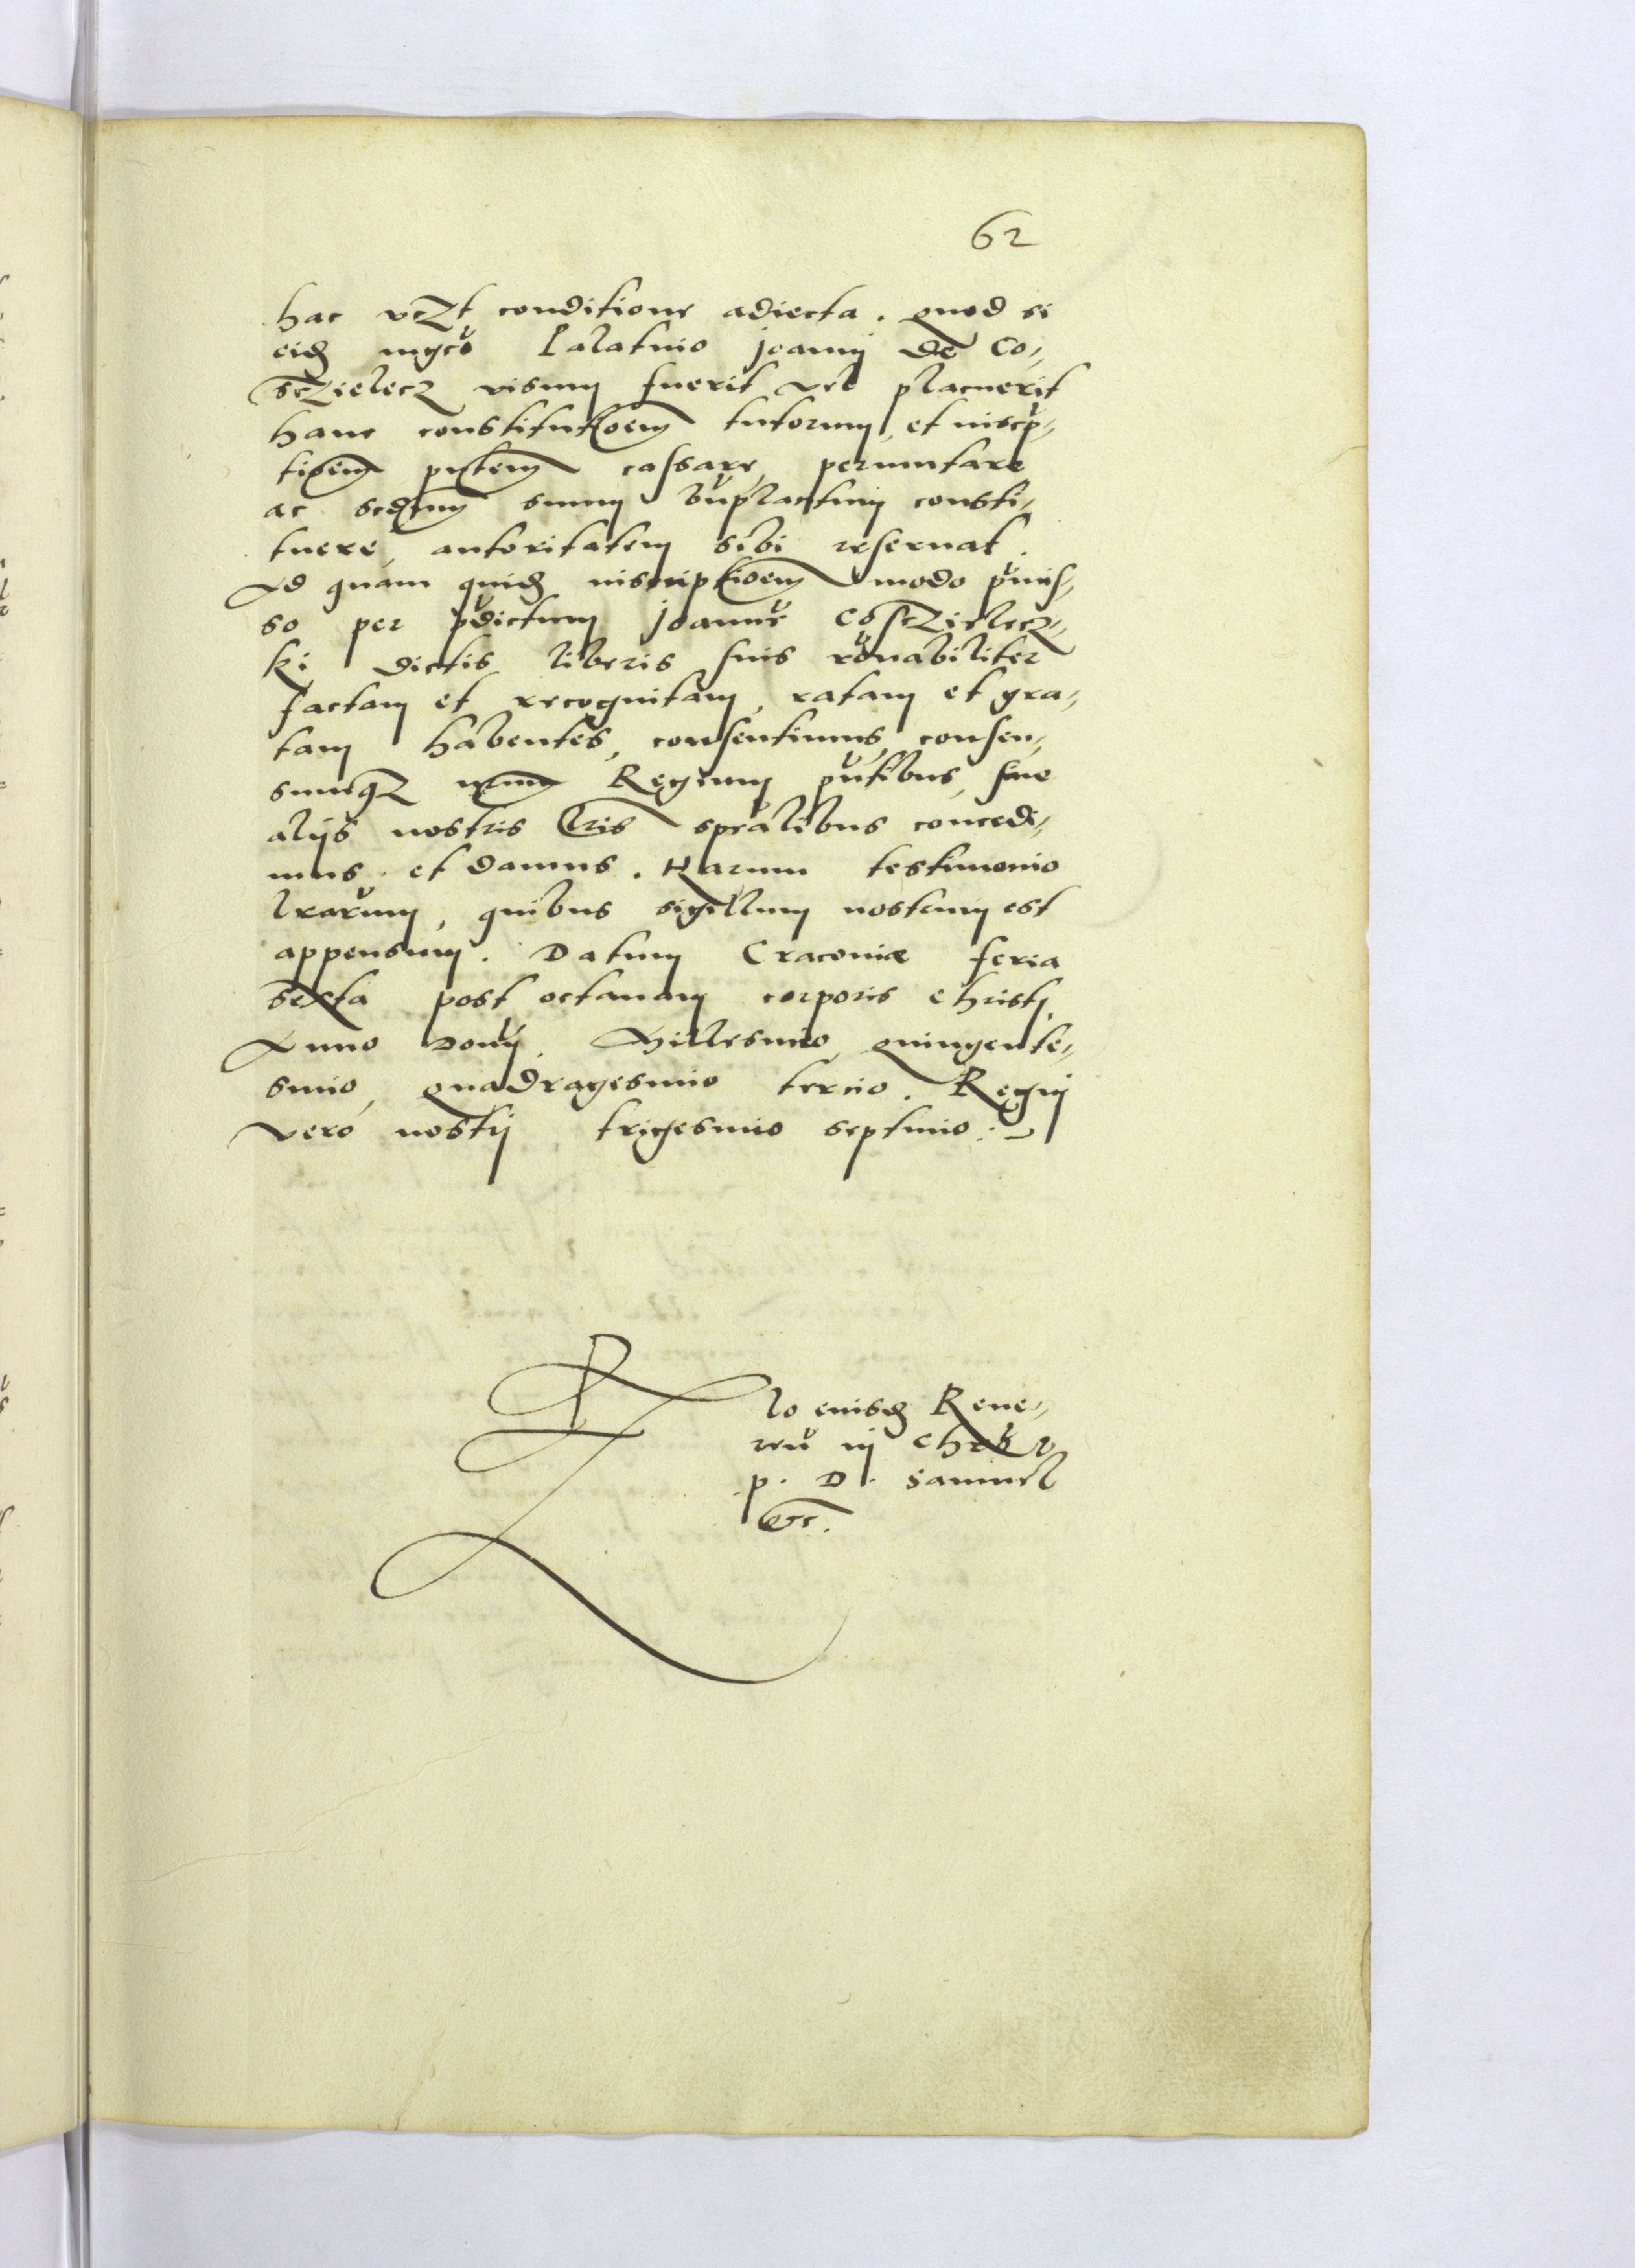 62
hac vczt conditione adiecta. quod si
eid mgco Palatino Joanni de Co-
sczielecz visum fuerit vel placuerit
hanc constitutoem tutorum, et inscrip-
tioem pntem cassare, permutare
ac scdum suum bnplacitum consti-
tuere, autoritatem sibi reservat.
Ad quam quid inscriptioem modo pmis-
so per pdictum Joannem Cosczielecz-
ki dictis liberis suis ronabiliter
factam et recognitam, ratam et gra-
tam habentes, consentimus, consen-
sumqz nrum Regium pntibus, sine
alijs nostris lris spealibus concedi-
mus et damus. Harum testimonio
lrarum, quibus sigillum nostrum est
appensum. Datum Cracoviæ feria
sexta post octavam corporis Christi,
Anno domj. Millesimo, quingente-
simo, quadragesimo tercio. Regnj
vero nostrj trigesimo septimo:
Rlo eiusd Reve-
ren in Chro
p. D. Samuel
etc.